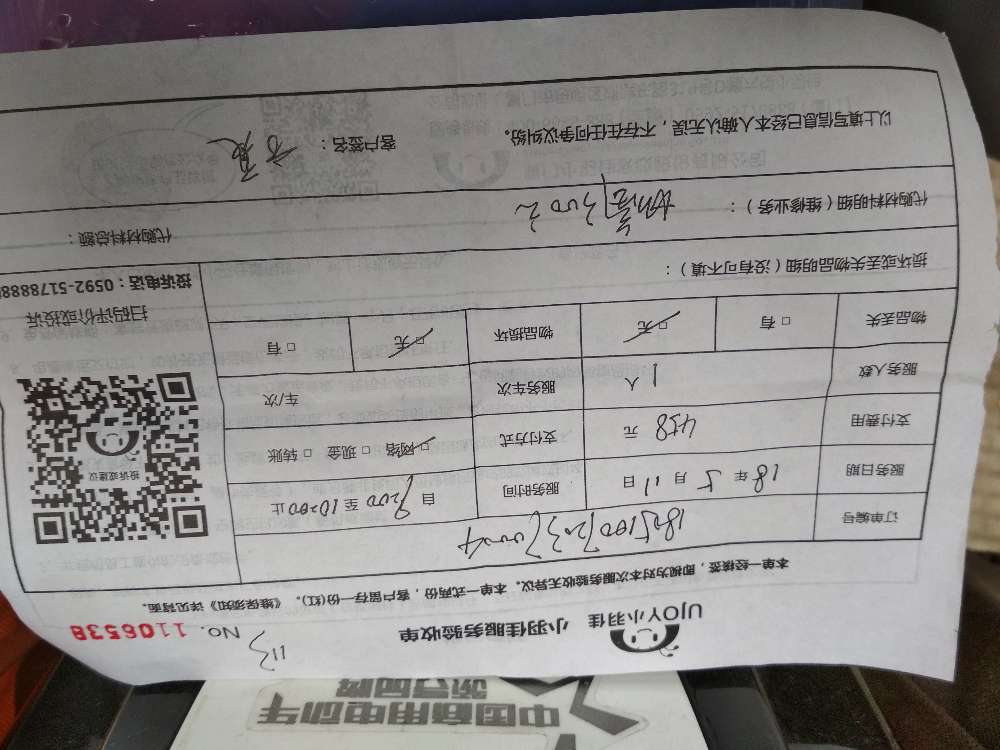 UJOY小羽佳 小羽佳服务验收单 No. 1106538
113
本单一经接签,即视为对本次服务验收无异议。本单一式两份,客户留存一份(红)。《维保须知》详见背面。
订单编号
服务日期 18年5月11日 服务时间 自9:00至10:00止
支付费用 458元 支付方式 □网络 □现金 □转账
服务人数 1人 服务车次 车/次
物品丢失 □有 □无 物品损坏 □无 □有
投诉或建议
扫码评价或投诉
投诉电话:0592-5178888
损坏或丢失物品明细(没有可不填):
代购材料明细(维修业务):
代购材料总额:
以上填写信息已经本人确认无误,不存在任何争议纠纷。 客户签名:
中国商用电动车
领军品牌